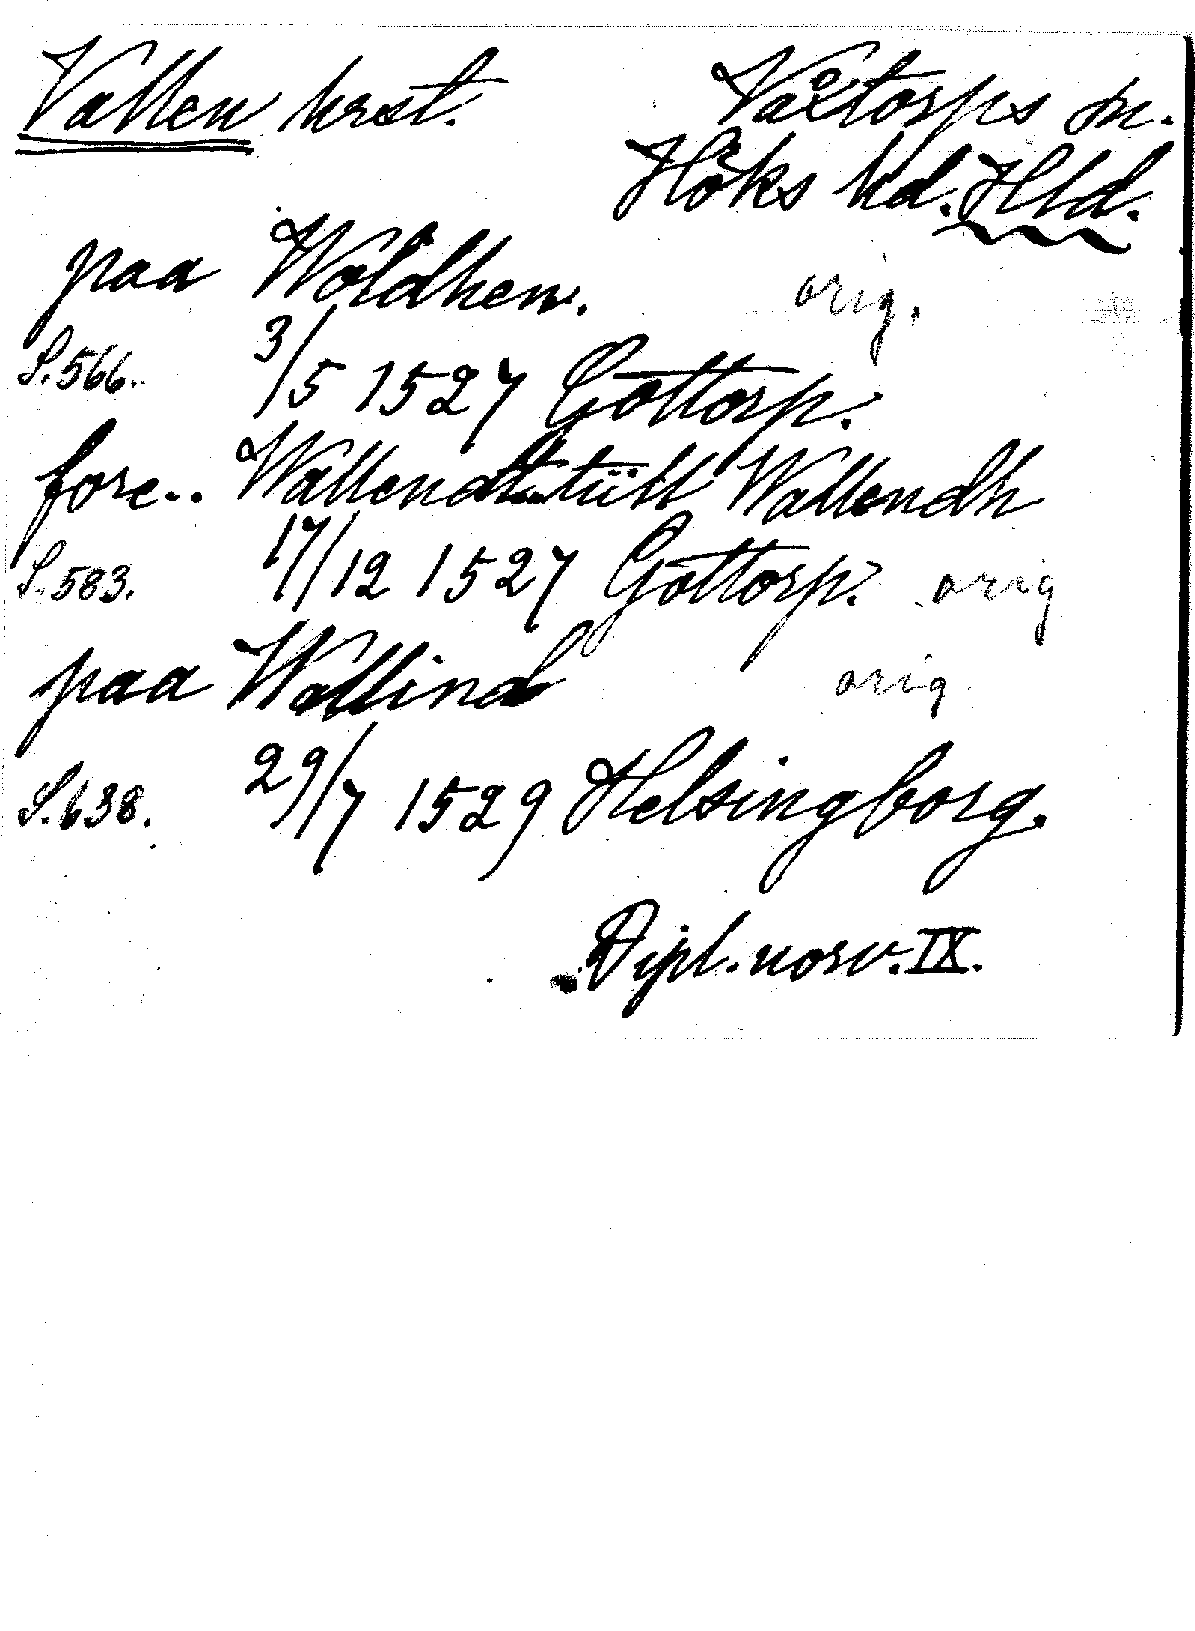 Vallen hrst. Våxtorps sn.
Höks hd. Hld.
paa Woldhem. orig.
S. 566. 3/5 1527 Gottorp.
fore.. Wallendh tüll Wallendh
S. 583. 17/12 1527 Gottorp. orig
paa Wallind orig
S. 638. 29/7 1529 Helsingborg.
Dipl. norv. IX.